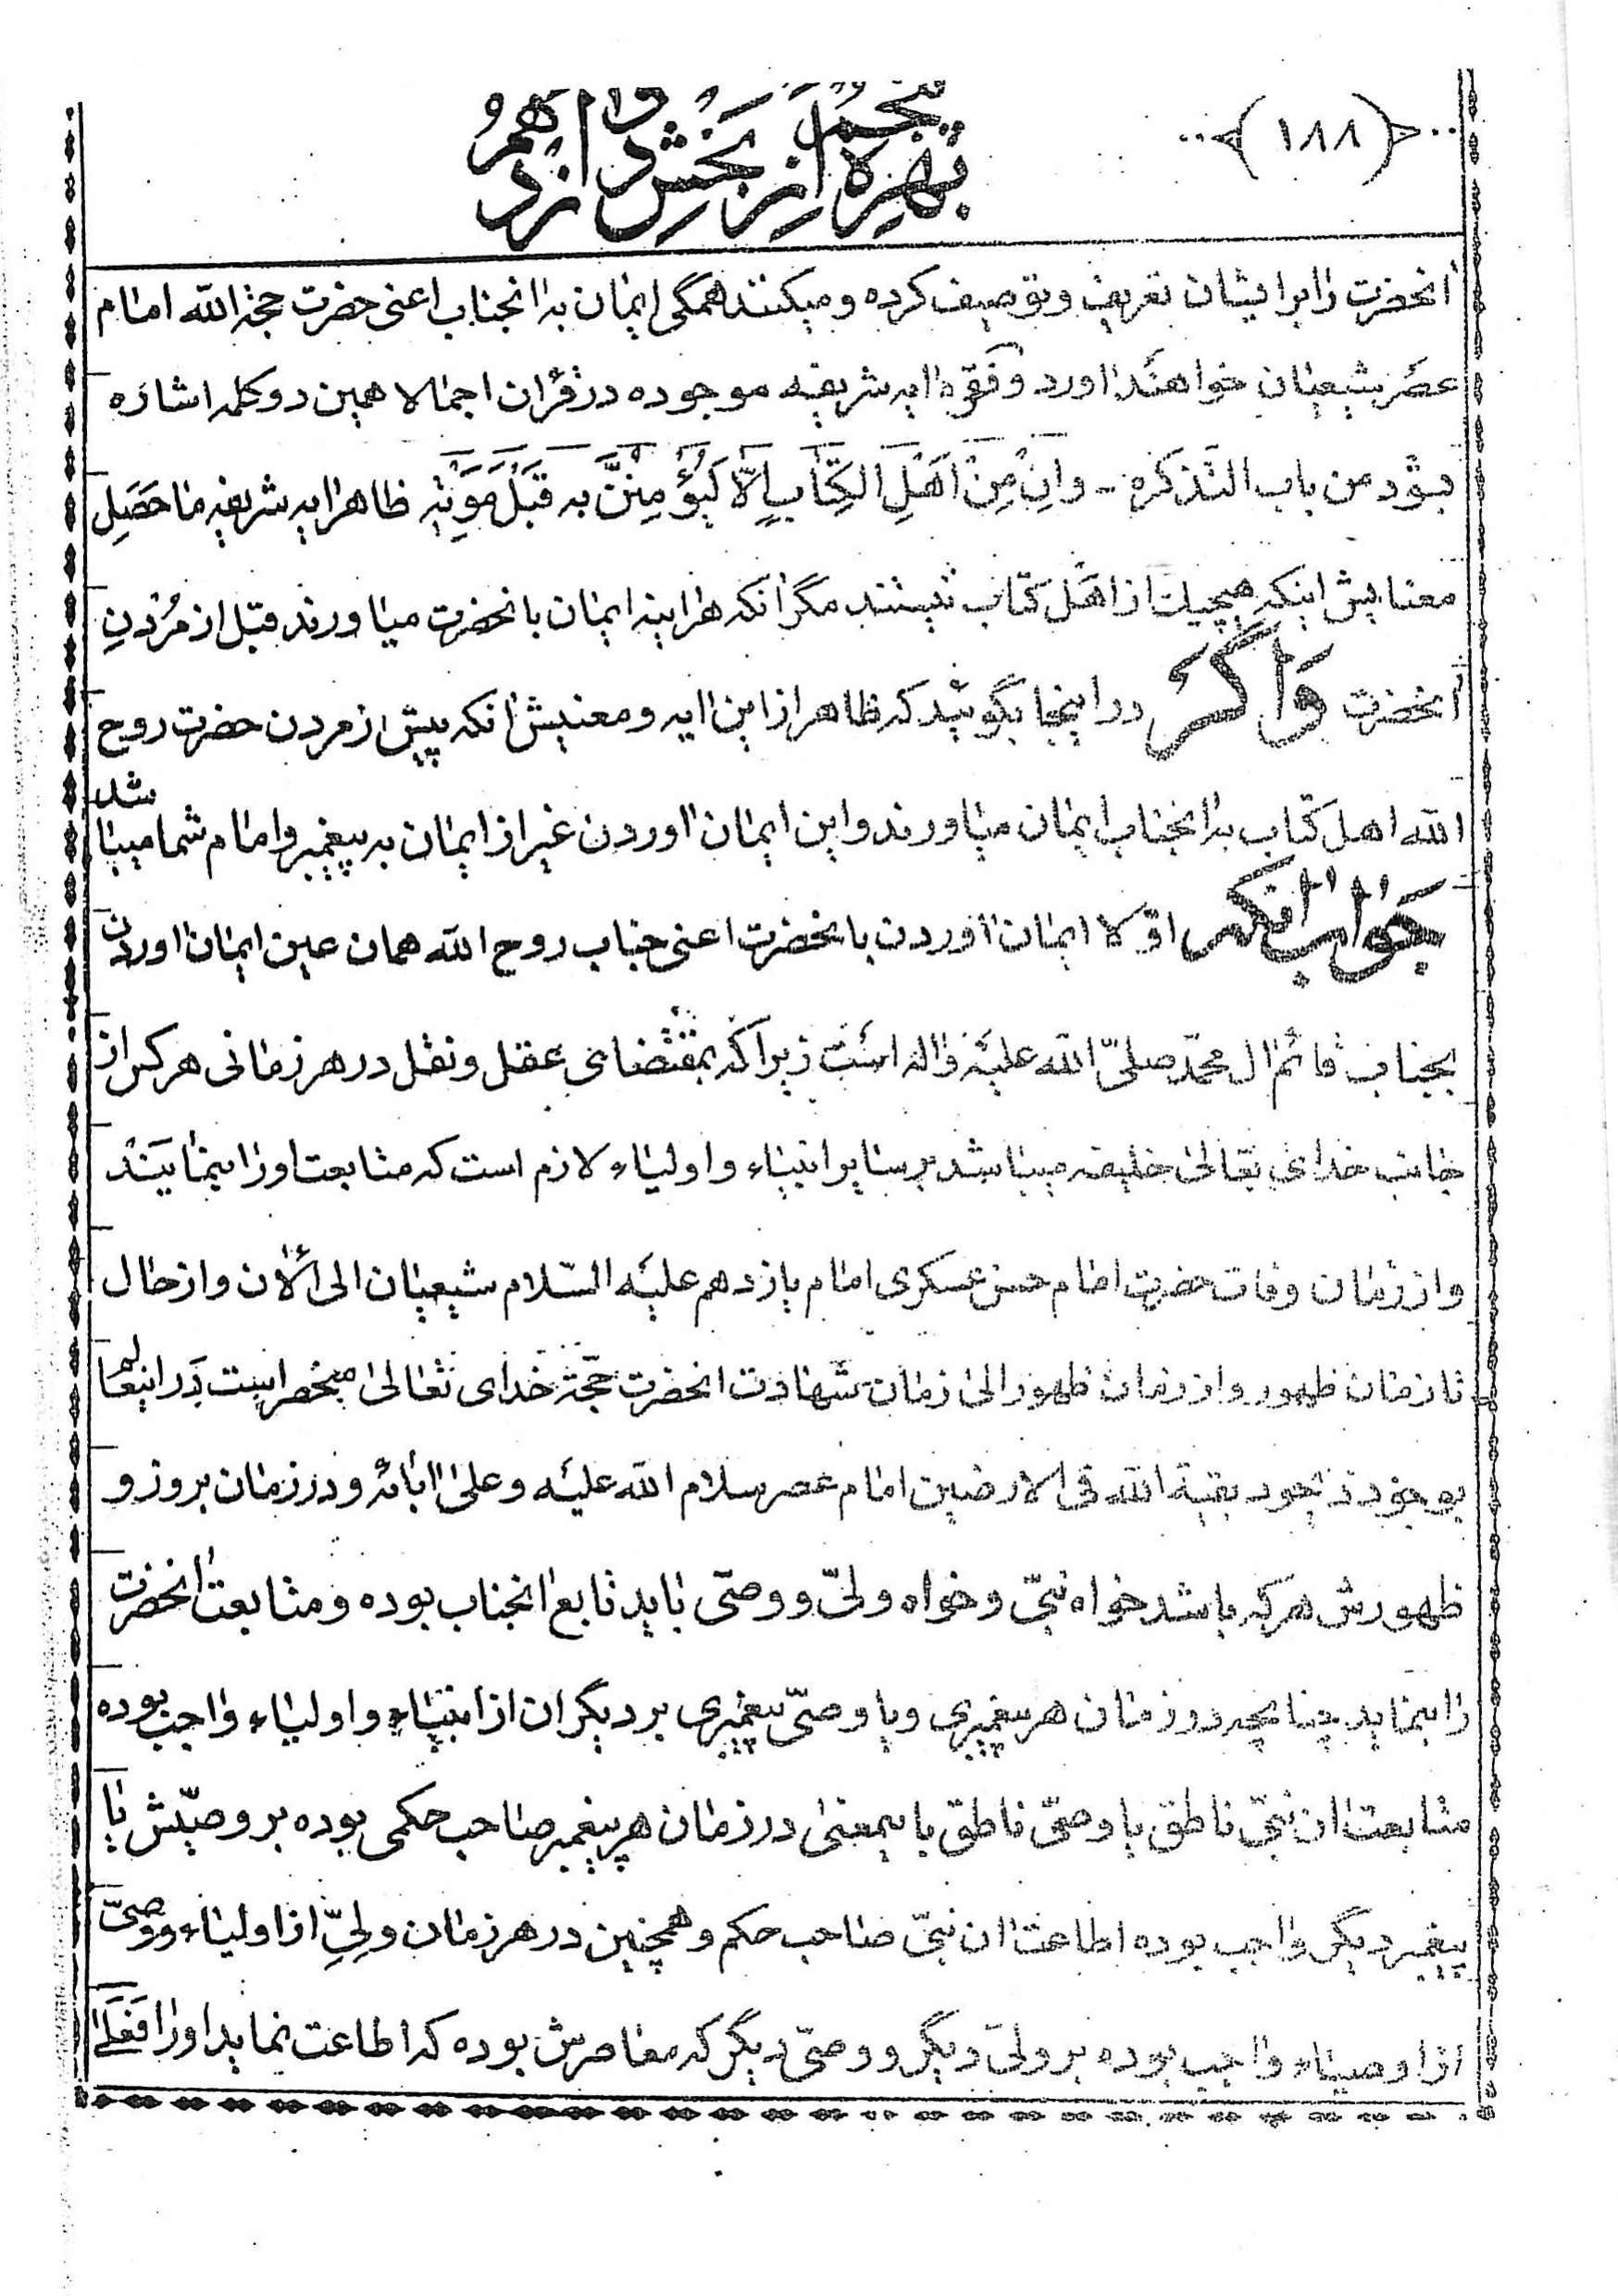 ﴿ ۱۸۸ ﴾
پنجم
بهره از بخش دوازدهم
آنحضرت را برایشان تعریف و توصیف کرده و میکنند همگی ایمان به انجناب اعنی حضرت حجة الله امام
عصر شیعیان خواهند اورد و فقره ایه شریفه موجوده در قران اجمالا همین دو کلمه اشاره
بود من باب التذکره - وَاِنْ مِنْ اَهْلِ الکِتٰابِ اِلّا لَیُؤْمِنَنَّ بِه قَبْلَ مَوْتِه ظاهر ایه شریفه ما حَصَلِ
معنایش اینکه هیچیک از اهل کتاب نیستند مگر انکه هر اینه ایمان بانحضرت میاورند قبل از مُرْدنِ
آنحضرت وَاگر در اینجا بگویید که ظاهر از این ایه و معنیش انکه پیش از مردن حضرت روح
الله اهل کتاب به انجناب ایمان میاورند و این ایمان اوردن غیر از ایمان به پیغمبر و امام شما میباشد
جَواب انکه اوّلا ایمان اوردن بانحضرت اعنی جناب روح الله همان عین ایمان اوردن
بجناب قائم ال محمّد صلّی الله علیه واله است زیرا که بمقتضای عقل و نقل در هر زمانی هر کس از
جانب خدای تعالی خلیفه میباشد بر سایر انبیاء و اولیاء لازم است که متابعت او را بنمایند
و از زمان وفات حضرت امام حسن عسکری امام یازدهم علیه السّلام شیعیان الی الآن و از حال
تا زمان ظهور و از زمان ظهور الی زمان شهادت انحضرت حجّة خدای تعالی منحصر است در اینعا لم
بوجود ذیجود بقیة الله فی الارضین امام عصر سلام الله علیه و علی ابائه و در زمان بروز و
ظهورش هر که باشد خواه نبیّ و خواه ولیّ و وصیّ باید تابع انجناب بوده و متابعت انحضرت
را بنماید چنانچه در زمان هر پیغمبری و یا وصیّ پیغمبری بر دیگران از انبیاء و اولیاء واجب بوده
متابعت ان نبیّ ناطق یا وصیّ ناطق باینمعنی در زمان هر پیغمبر صاحب حکمی بوده بر وصیّش یا
پیغمبر دیگر واجب بوده اطاعت ان نبیّ صاحب حکم و همچنین در هر زمان ولیّ از اولیاء و وصیّ
از اوصیاء واجب بوده بر ولیّ دیگر و وصیّ دیگر که معاصرش بوده که اطاعت نماید او را فَعَلی